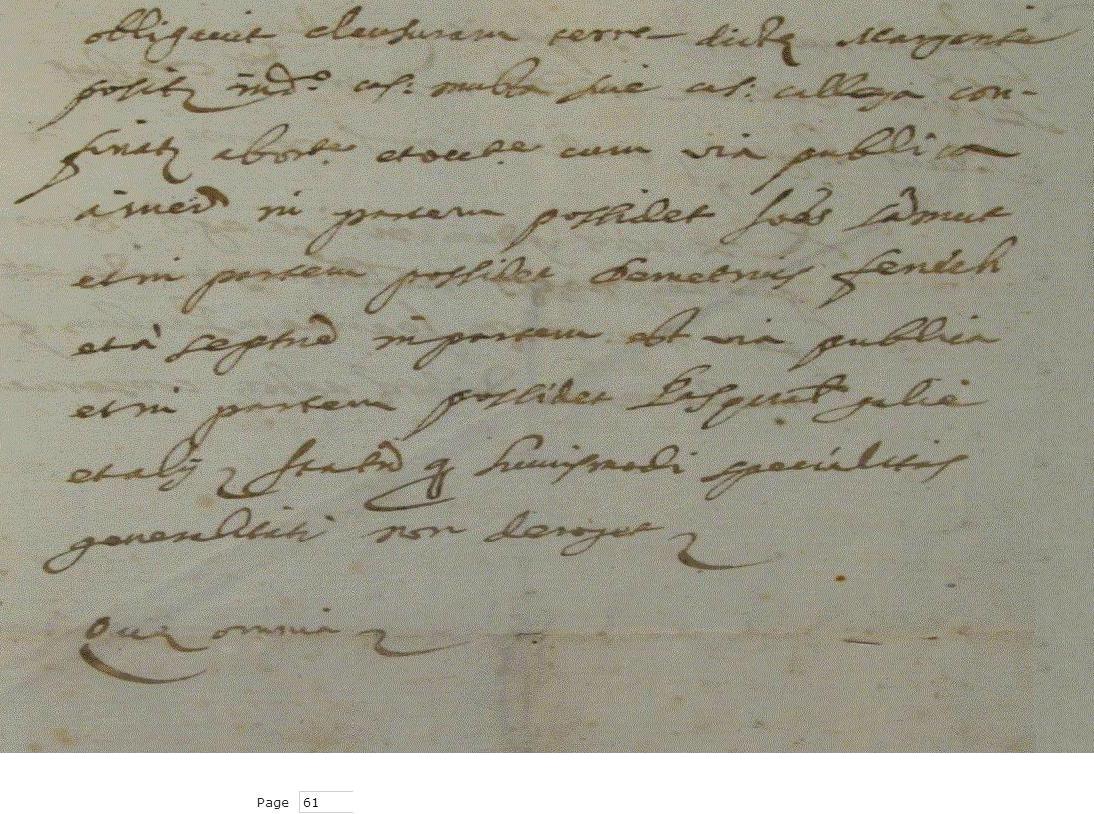 obligavit clausuram terre dictę Margarita
positę in d.º cas: musta sive cas: callega con-
finatę ab ort.e et occ.e cum via publica
à merid in partem possidet Joēs Cāmut
et in partem possidet Demetrius fenech
et à septrē in partem est via publica
et in partem possidet Gasparē
et alij q huiusmodi specialitas
generalitati non deroget
Quę omnia
Page 61